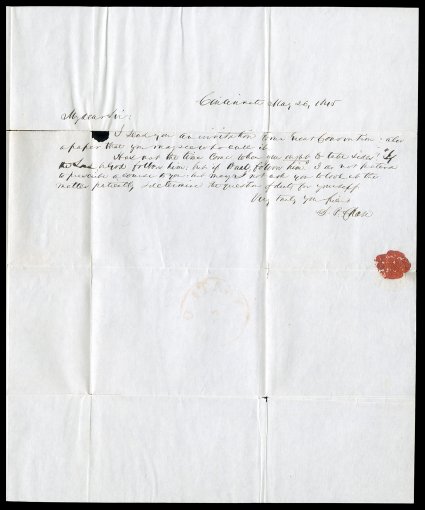 Cincinnati May 26, 1845
My dear Sir:
I send you an invitation to our great Convention: also
a paper that you may see who call it.
Has not the time come when we ought to take sides? "If
the Lord be god follow him: but if Baal follow him." I do not pretend
to prescribe a course to you: but may I not ask you to look at this
matter patiently & determine the question of duty for yourself.
Very truly your friend
S. P. Chase